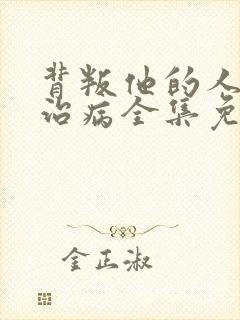 背叛他的人
治病全集免
金正淑